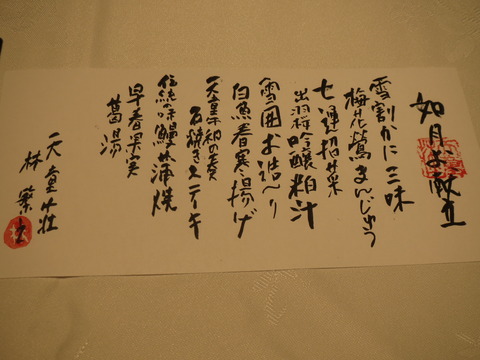 如月お献立
雪割かに三味
梅花鶯まんじゅう
七運招菜
出羽桜吟醸粕汁
雪囲お造り
白魚春寒揚げ
天童米納の奏
石焼きステーキ
伝統の味鰻の蒲焼
早春果実
葛湯
天童荘
林繁